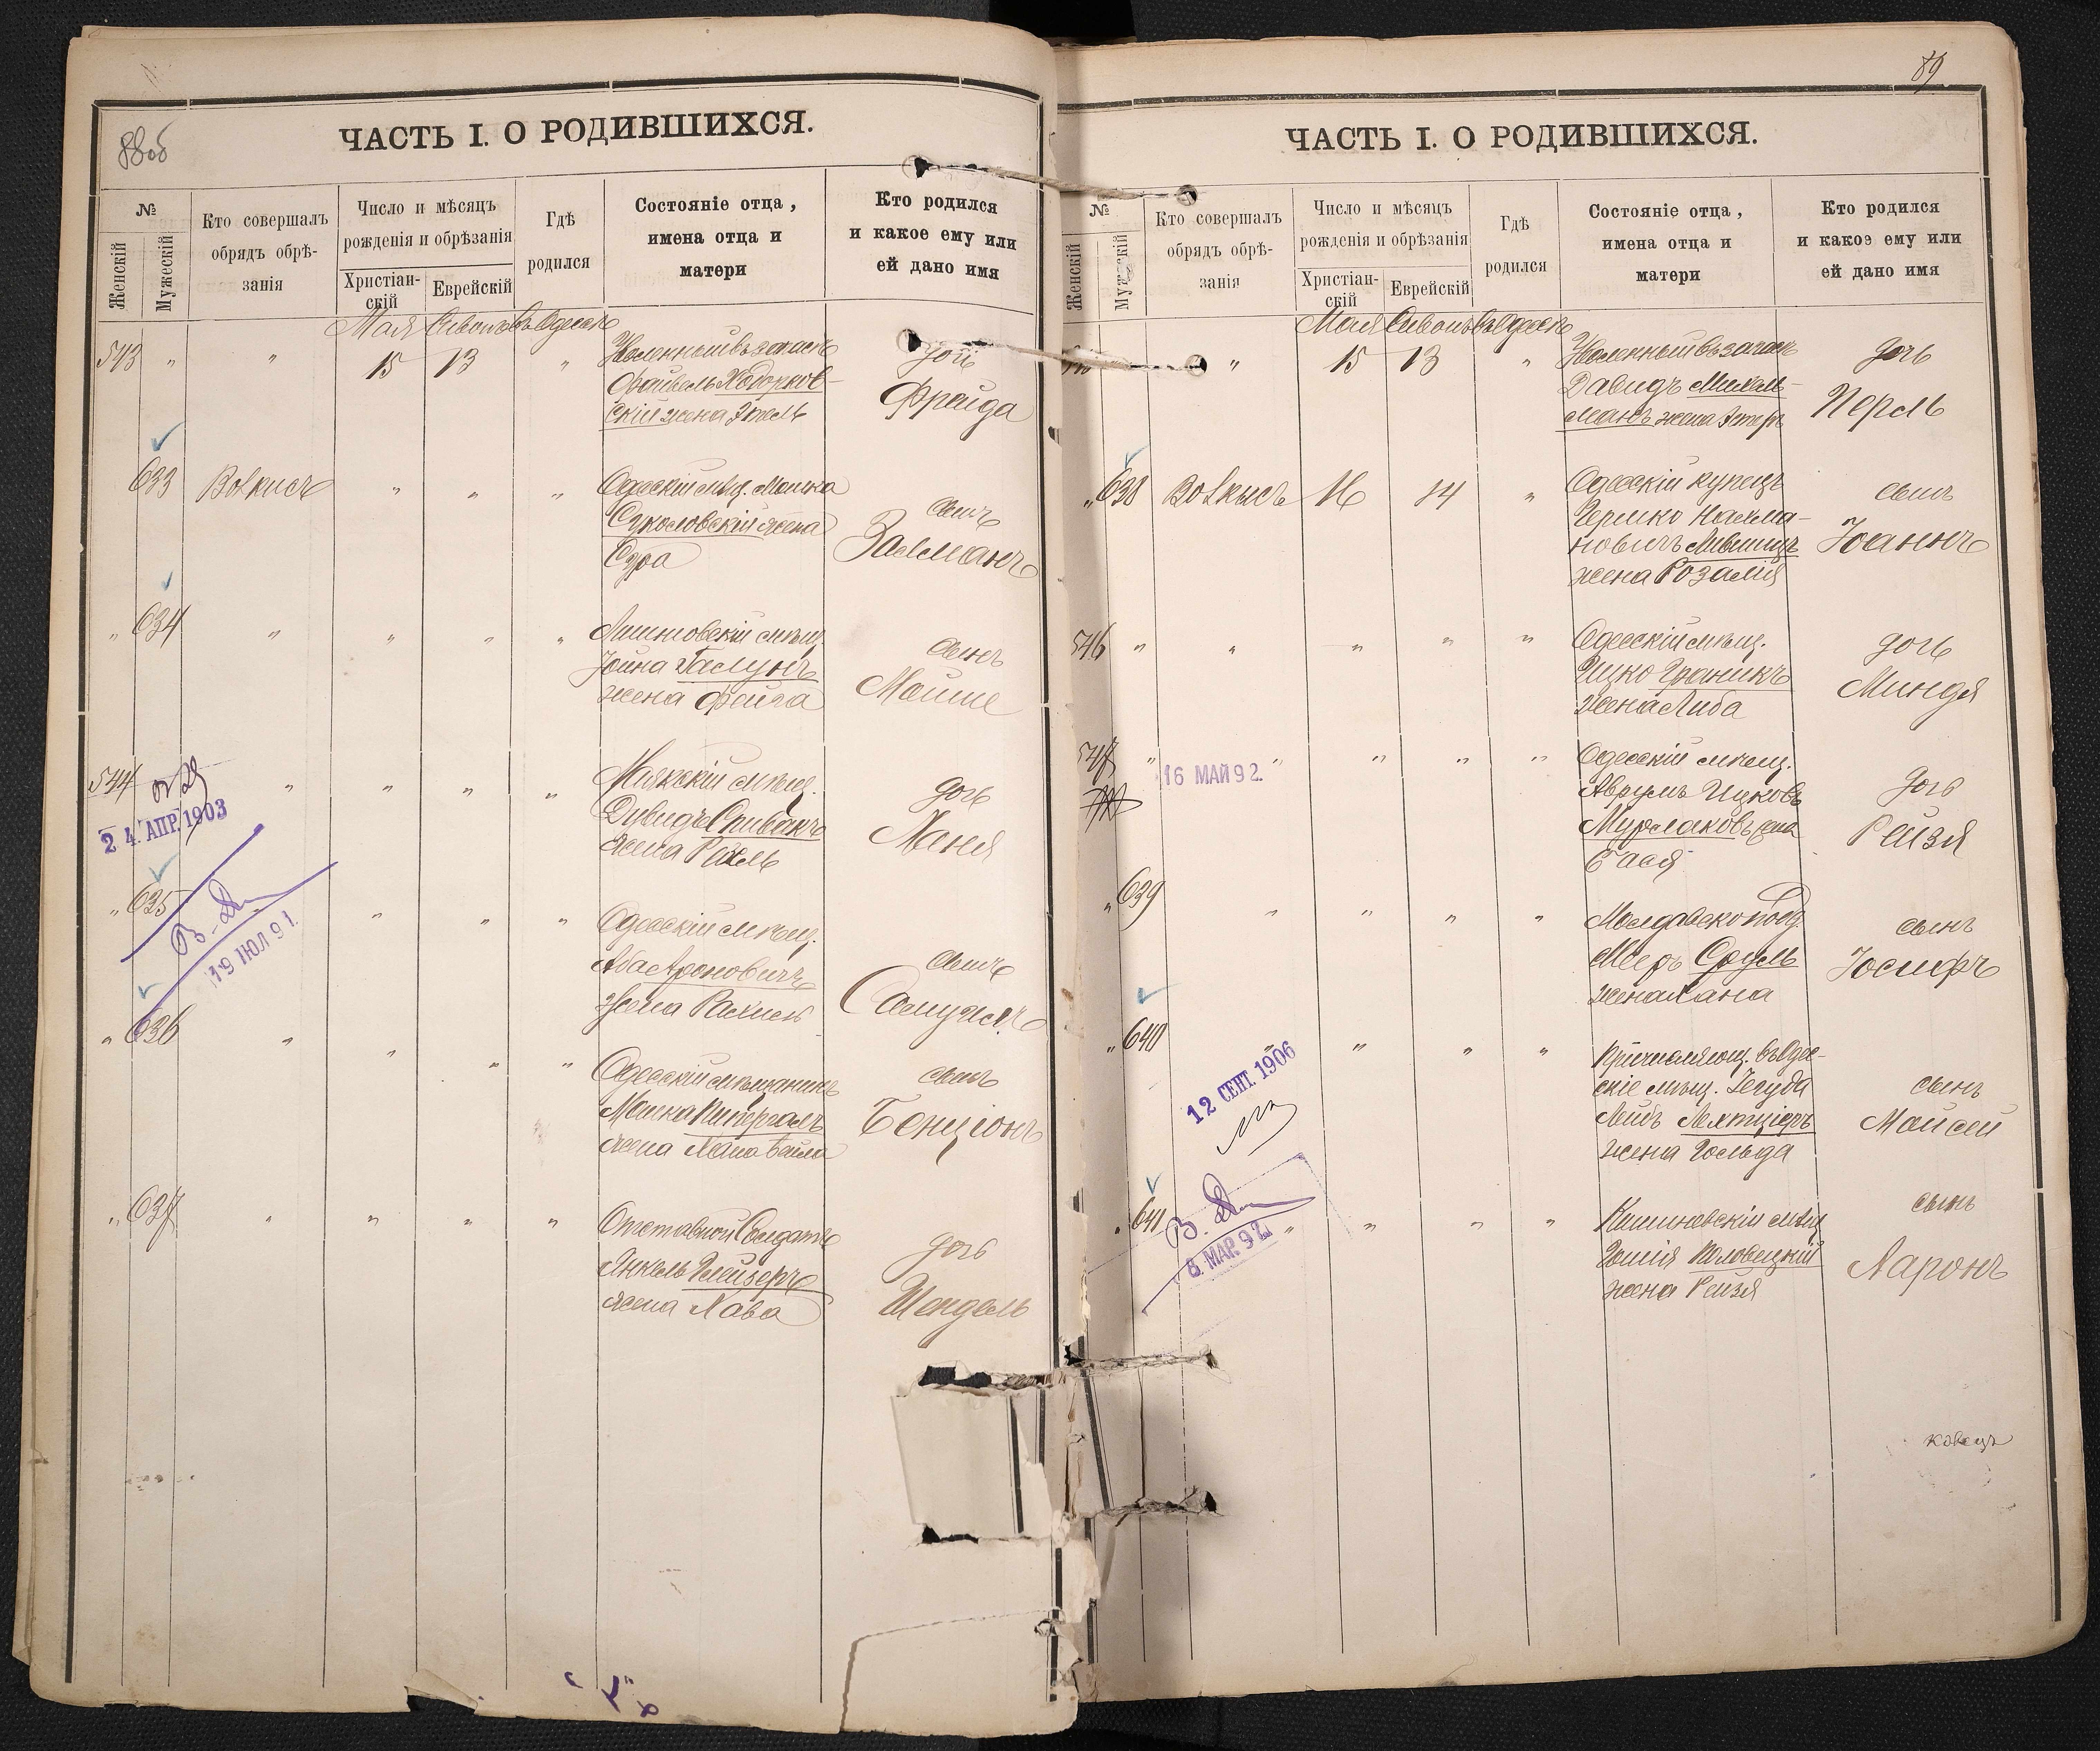 88об
ЧАСТЬ I. О РОДИВШИХСЯ.
№
Женскій
Мужескій
Кто совершалъ
обрядъ обрѣ-
занія
Число и мѣсяцъ
рожденія и обрѣзанія
Христіан-
скій
Еврейскій
Гдѣ
родился
Состояніе отца,
имена отца и
матери
Кто родился
и какое ему или
ей дано имя
Мая Сивонъ въ Одессѣ
543 " " 15 13 "
Уволенный въ запасъ
Файвель Ходорков-
скій жена Этель
дочь
Фрейда
633 Волкисъ " " "
Одесскій мѣщ. Мошка
Соколовскій жена
Сура
сынъ
Залманъ
" 634 " " " "
мѣщ.
Іойна
жена Фейга
сынъ
Мойше
544 " " " "
Маякскій мѣщ.
Дувидъ Спивакъ
жена Рахль
дочь
Ханя
24. АПР. 1903
" 635 " " "
Одесскій мѣщ.
Аба Ароновичъ
жена
сынъ
Самуилъ
19 ІЮЛ 91.
" 636 " " " "
Одесскій мѣщанинъ
Мошка
жена Хана Бейла
сынъ
Бенціонъ
" 637 " " " "
Отставной Солдатъ
Янкель Глейзеръ
жена Хава
дочь
Шендель
89
ЧАСТЬ I. О РОДИВШИХСЯ.
№
Женскій
Мужескій
Кто совершалъ
обрядъ обрѣ-
занія
Число и мѣсяцъ
рожденія и обрѣзанія
Христіан-
скій
Еврейскій
Гдѣ
родился
Состояніе отца,
имена отца и
матери
Кто родился
и какое ему или
ей дано имя
Мая Сивонъ въ Одессѣ
" 15 13 "
Уволенный въ запасъ
Давидъ Михель-
манъ жена Эстеръ
дочь
Перль
" 638 Волкисъ 16 14 "
Одесскій купецъ
Гершко Нахма-
новичъ Лившицъ
жена Розалія
сынъ
Іоаннъ
546 " " " " "
Одесскій мѣщ.
Ицко Граникъ
жена Либа
дочь
Миндя
547 " " " " "
16 МАЙ 92.
Одесскій мѣщ.
Аврумъ Ицковъ
Мурлаковъ жена
Бася
дочь
Рейзя
" 639 " " " "
Молдавскопод.
Мееръ Сруль
жена Хана
сынъ
Іосифъ
" 640 " " " "
Причисляющ. въ Одес-
скіе мѣщ. Іегуда
Лейбъ
жена Гольда
сынъ
Мойсей
12 СЕНТ. 1906
" 641 " " " "
Кишиневскій мѣщ.
жена Рейзя
сынъ
Ааронъ
8. МАР. 92.